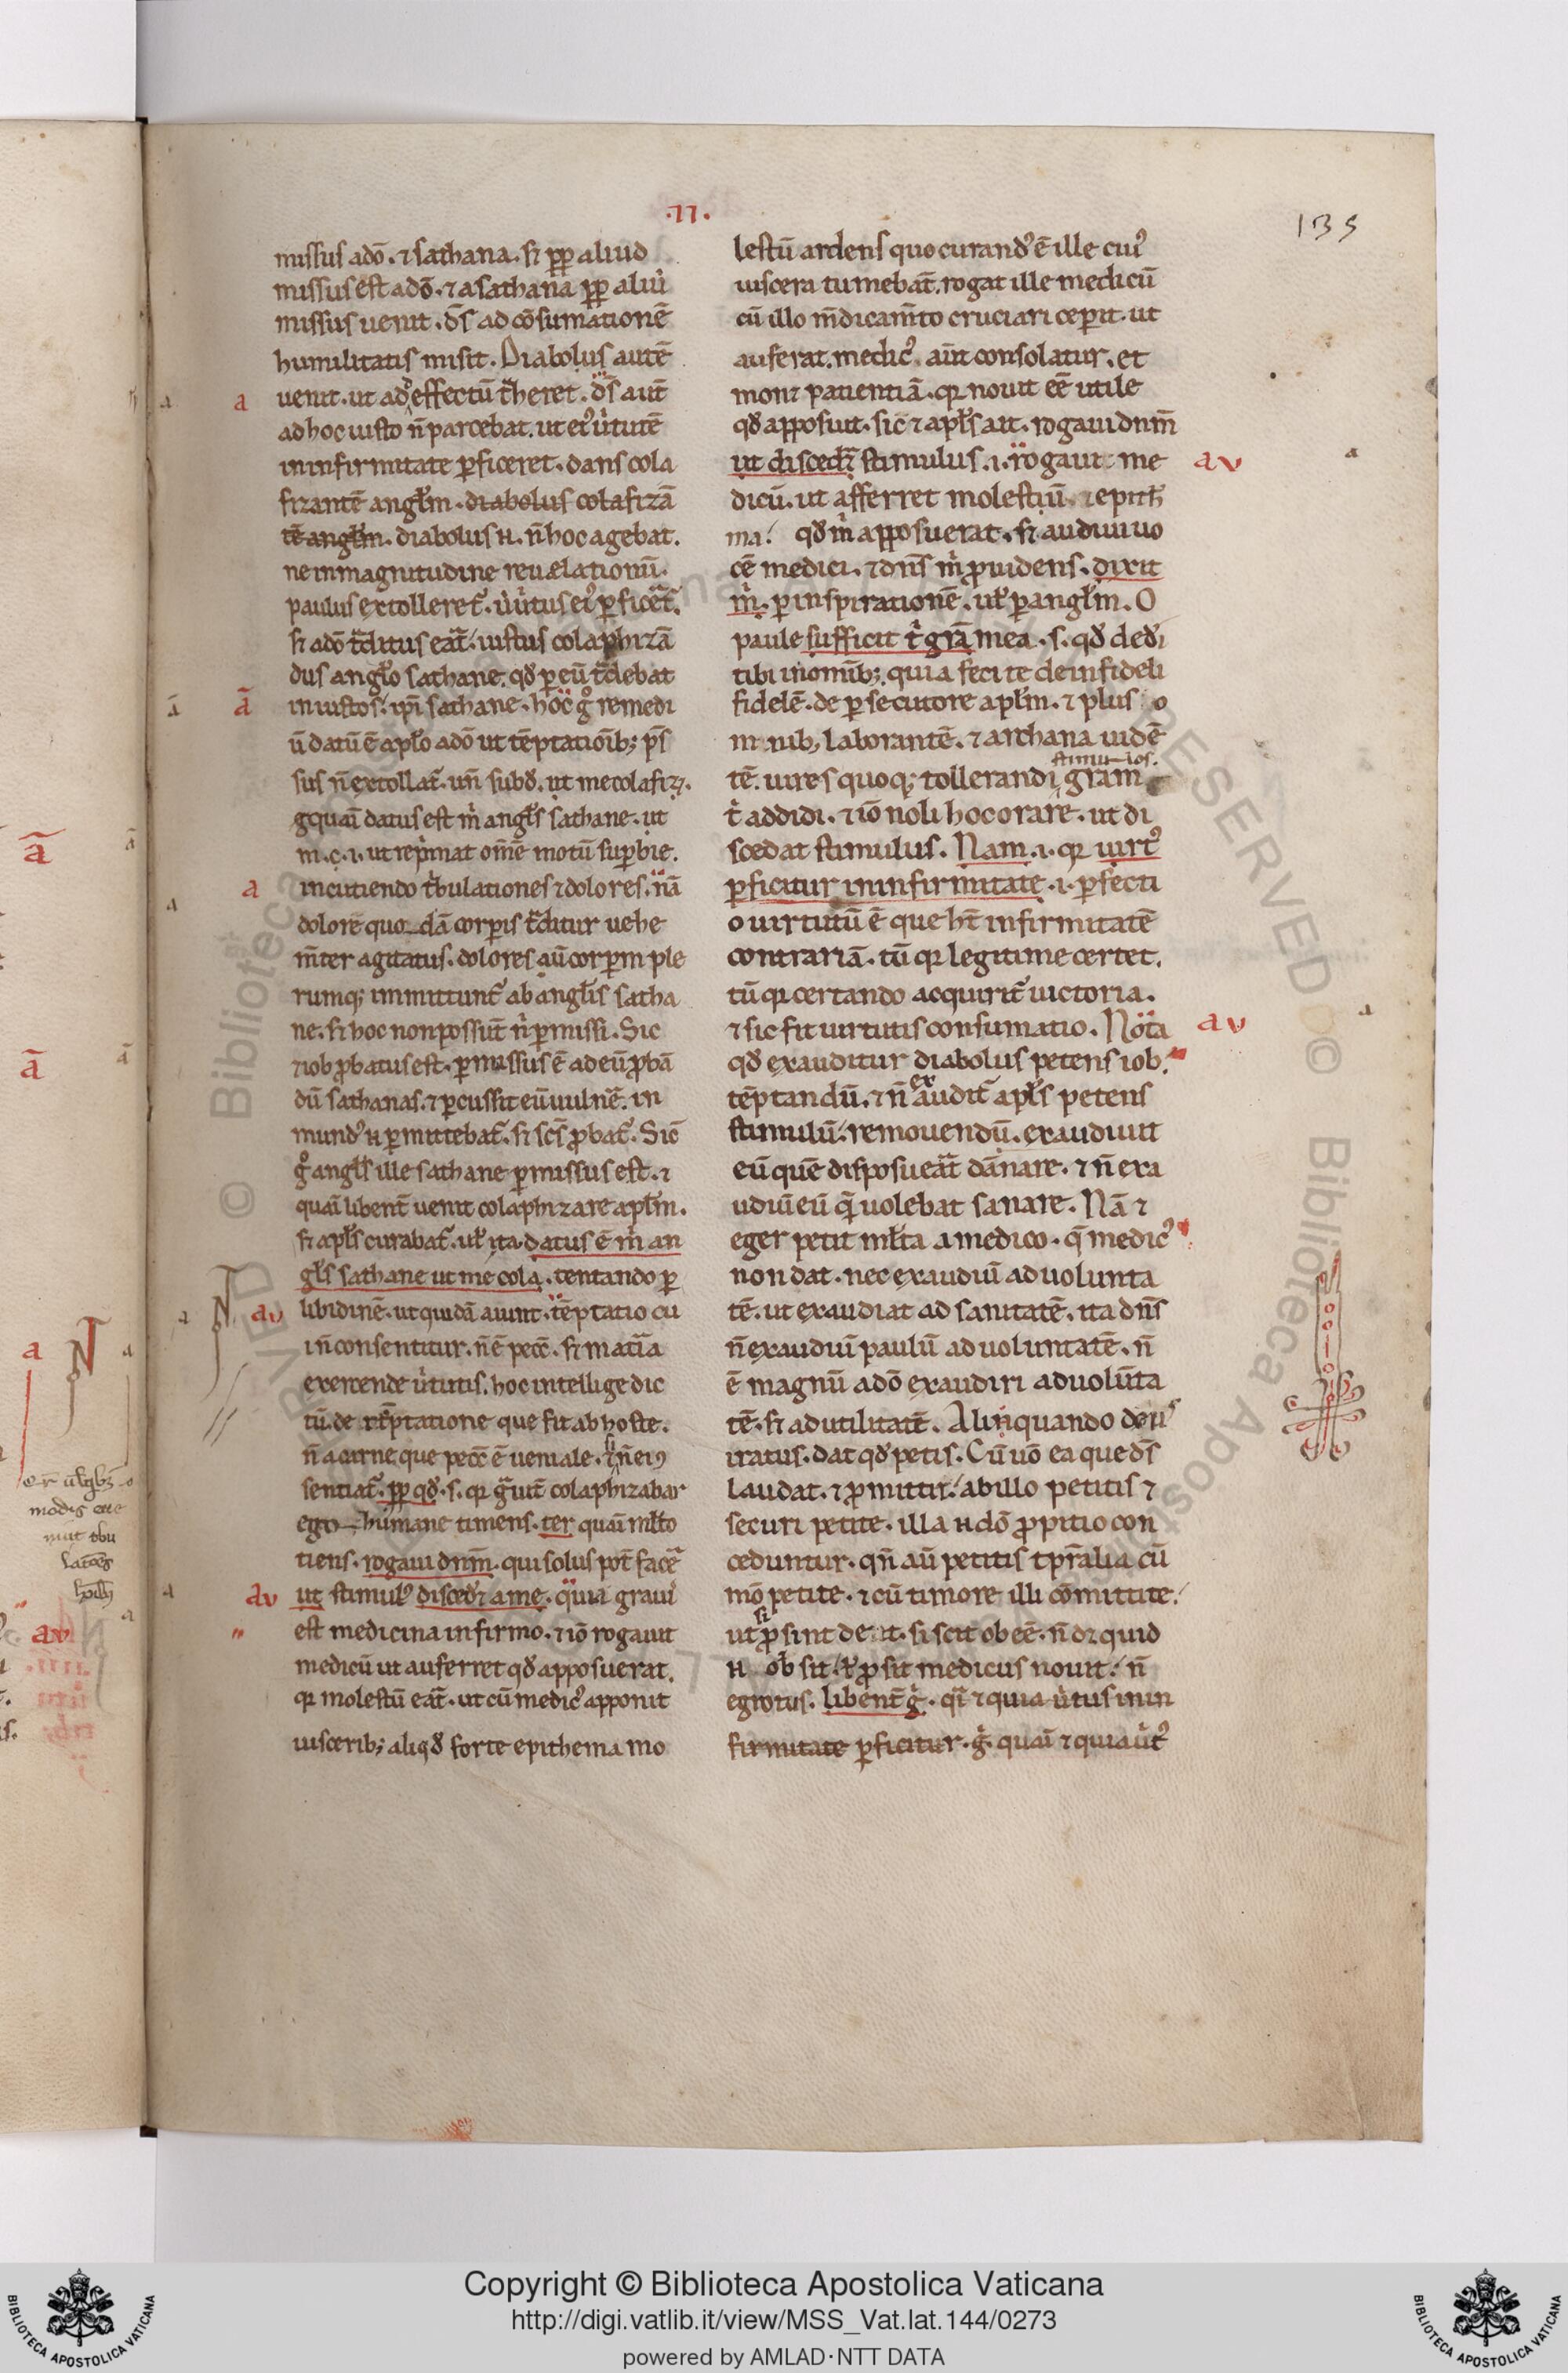 .II.
135
missus a dō. ⁊ sathana. sꝫ ꝓp aliud
missus est a dō. ⁊ a sathana ꝓp aliud
missus uenit. d̄s ad cōsumationē
humilitatis misit. Diabolus autē
uenit. ut ad effectū t̾heret. d̄s aut̄
ad hoc iusto n̄ parcebat. ut ei᾽ u̾tutē
in infirmitate ꝑficeret. dans cola
fizantē angl̄m. diabolus colafizā
tē angl̄m. diabolus ɴ. n̄ hoc agebat.
ne in magnitudine reuelationū
paulus extolleret᾽. u̾ u̾tus ei᾽ ꝑficet᾽.
sꝫ a dō t̾ditus eāt iustus colaphizā
dus angl̄o sathane. qđ ꝑ eū t̾debat
iniustos ip̄i sathane. hoc g° remedi
ū datū ē apl̄o a dō ut tēptatiōibꝫ p̄s
sus n̄ extollat᾽. un̄ subđ. ut me colafizꝫ.
q quāi datus est m̾ angl̄s sathane. ut
m. c. i. ut rep̾mat om̄ē motū suꝑbie.
incutiendo t̾bulationes ⁊ dolores. nā
dolore quodā corꝑis t̾ditur uehe
m̄ter agitatus. dolores aū corꝑm ple
rumqꝫ immittunt᾽ ab angl̄is satha
ne. sꝫ hoc non possūt n̾ ꝑmissi. Sic
⁊ iob ꝓbatus est. ꝑmissus ē ad eū ꝓbā
dū sathanas. ⁊ ꝑcussit eū uulnē. in
mund᾽ ɴ ꝑmittebat᾽. sꝫ sc̄s ꝓbat᾽. Sic̄
g° angl̄s ille sathane ꝑmissus est. ⁊
quāi libent̄ uenit colaphizare apl̄m.
sꝫ apl̄s curabat᾽. ul̄ ita. datus ē m̾ an
gl̄s sathane ut me cola. tentando ꝑ
libidinē. ut quidā aiunt. tēptatio cu
i n̄ consentitur. n̄ ē pecc̄. sꝫ mat̄ia
exercende u̾tutis. hoc intellige dic
tū. de tēptatione que fit ab hoste.
n̄ a carne que pecc̄ ē ueniale. n̄ ei᾽
sentiat᾽. ꝓp qđ. s. qꝛ g̾uit̄ colaphizabar
ego humane timens. ter quāi ml̄to
tiens. rogaui dn̄m. qui solus pot̄ facē
ut stimul᾽ disced̾ a me. quia graui᾽
est medicina infirmo. ⁊ iō rogauit
medicū ut auferret qđ apposuerat.
qꝛ molestū eāt. ut cū medic᾽ apponit
uisceribꝫ aliqđ forte epithema mo
lestū ardens quo curand᾽ ē ille cui᾽
uiscera tumebāt. rogat ille medicū
cū illo m̄dicam̄to cruciari ceꝑit. ut
auferat. medic᾽ aūt consolatur. et
monꝫ patientiā. qꝛ nouit eē utile
qđ apposuit. sic̄ ⁊ apl̄s ait. rogaui dn̄m
ut disced̾ stimulus. i. rogaui me
dicū. ut afferret molestiū ⁊ epith
ma. qđ m̾ apposuerat. sꝫ audiui uo
cē medici. ⁊ dn̄s m̾ ꝓuidens. dixit
m̾. ꝑ inspirationē. ul̄ ꝑ angl̄m. O
paule sufficit t̾ gr̄a mea. s. qđ ded̾i
tibi in omībꝫ quia feci te de infideli
fidelē. de ꝑsecutore apl̄m. ⁊ plus o
m nibꝫ laborantē. ⁊ archana uidē
stimulos.
tē. uires quoqꝫ tollerandi gram
t̾ addidi. ⁊ iō noli hoc orare. ut di
scedat stimulus. Nam. i. qꝛ uirt᾽
ꝑficitur in infirmitate. i. ꝑfecti
o uirtutū ē que h̄t infirmitatē
contrariā. tū qꝛ legitime certet.
tū qꝛ certando acquirit᾽ uictoria.
⁊ sic fit uirtutis consumatio. Nota
qđ exauditur diabolus petens iob
ex
tēptandū. ⁊ n̄ audit᾽ apl̄s petens
stimulū remouendū. exaudiuit
eū quē disposueāt dānare. ⁊ n̄ exa
udiui eū q̄ uolebat sanare. Nā ⁊
eger petit ml̄ta a medico. q̄ medic᾽
non dat. nec exaudiū ad uolunta
tē. ut exaudiat ad sanitatē. ita dn̄s
n̄ exaudiui paulū ad uoluntatē. n̄
ē magnū a dō exaudiri ad uolūta
tē. sꝫ ad utilitatē. Aliquando deus
iratus. dat qđ petis. Cū uō ea que d̄s
laudat. ⁊ ꝓmittit ab illo petitis ⁊
securi petite. illa ɴ dō ꝓpitio con
ceduntur. qn̄ aū petitis tp̄ralia cū
mō petite. ⁊ cū timore illi cōmittite.
si
ut ꝓsint det. si scit obeē. n̄ dꝫ quid
ɴ obsit. ul̄ ꝓsit medicus nouit. n̄
egrotus. libent̄ g̾. q̄i ⁊ quia u̾tus in in
firmitate ꝑficitur. g̾. quāi ⁊ quia u̾t᾽
a
a
ā
ā
a
a
N
a
av
av
a
av
a
av
a
modis
Copyright © Biblioteca Apostolica Vaticana
http://digi.vatlib.it/view/MSS_Vat.lat.144/0273
powered by AMLAD·NTT DATA
BIBLIOTECA APOSTOLICA VATICANA
BIBLIOTECA APOSTOLICA VATICANA